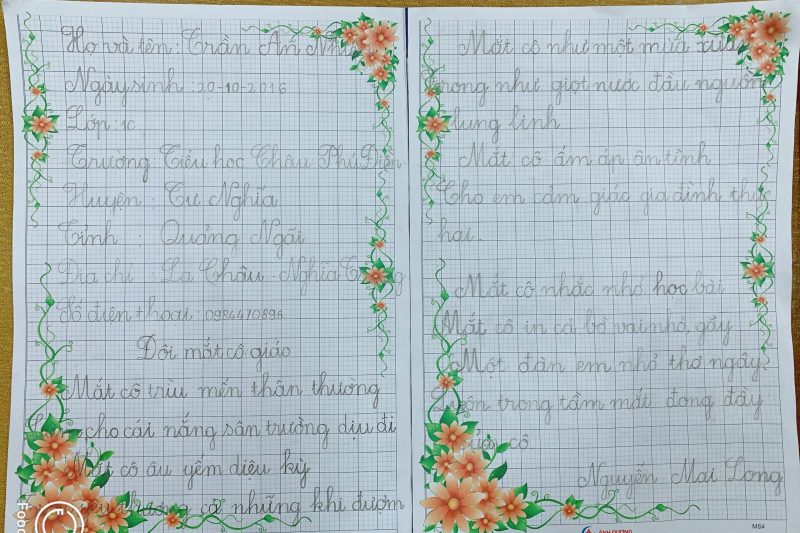 Họ và tên: Trần An
Ngày sinh: 20-10-2016
Lớp: 1C
Trường Tiểu học Châu Phú Điền
Huyện: Tư Nghĩa
Tỉnh: Quảng Ngãi
Địa chỉ: La Châu - Nghĩa
Số điện thoại: 0984470896
Đôi mắt cô giáo
Mắt cô trìu mến thân thương
cho cái nắng sân trường dịu đi
Mắt cô âu yếm diệu kỳ
những khi đượm
Mắt cô như một mùa
trong như giọt nước đầu nguồn
lung linh
Mắt cô ấm áp ân tình
Cho em cảm giác gia đình thứ
hai.
Mắt cô nhắc nhở học bài
Mắt cô in cả bờ vai nhỏ, gầy
Một đàn em nhỏ thơ ngây
trong tầm mắt đong đầy
cô
Nguyễn Mai Long
ÁNH DƯƠNG
MS4